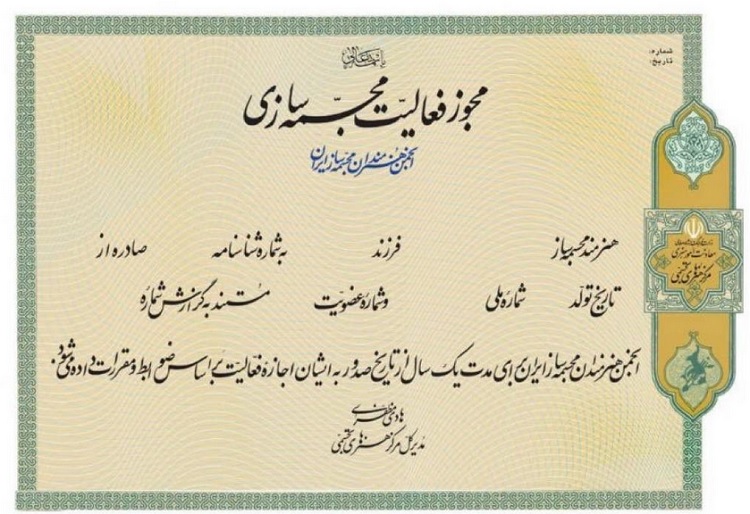 باسمه تعالی
شماره:
تاریخ:
مجوز فعالیت مجسمه سازی
انجمن هنرمندان مجسمه ساز ایران
هنرمند مجسمه ساز فرزند به شماره شناسنامه صادره از
تاریخ تولد شماره ملی و شماره عضویت مستند به گزارش شماره
انجمن هنرمندان مجسمه ساز ایران برای مدت یک سال از تاریخ صدور به ایشان اجازه فعالیت بر اساس ضوابط و مقررات داده می شود.
هادی مظفری
مدیر کل مرکز هنرهای تجسمی
معاونت امور هنری
مرکز هنرهای تجسمی